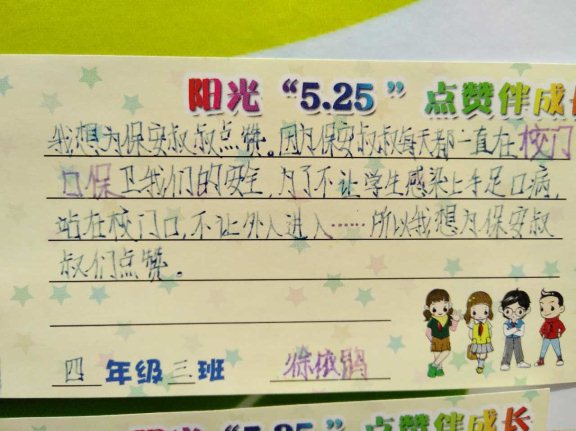 阳光“5.25”点赞伴成长
我想为保安叔叔点赞。因为保安叔叔每天都一直在校门
口保卫我们的安全,为了不让学生感染上手足口病,
站在校门口,不让外人进入……所以我想为保安叔
叔们点赞。
四年级三班 徐依鹃
阳光“5.25”点赞伴成长